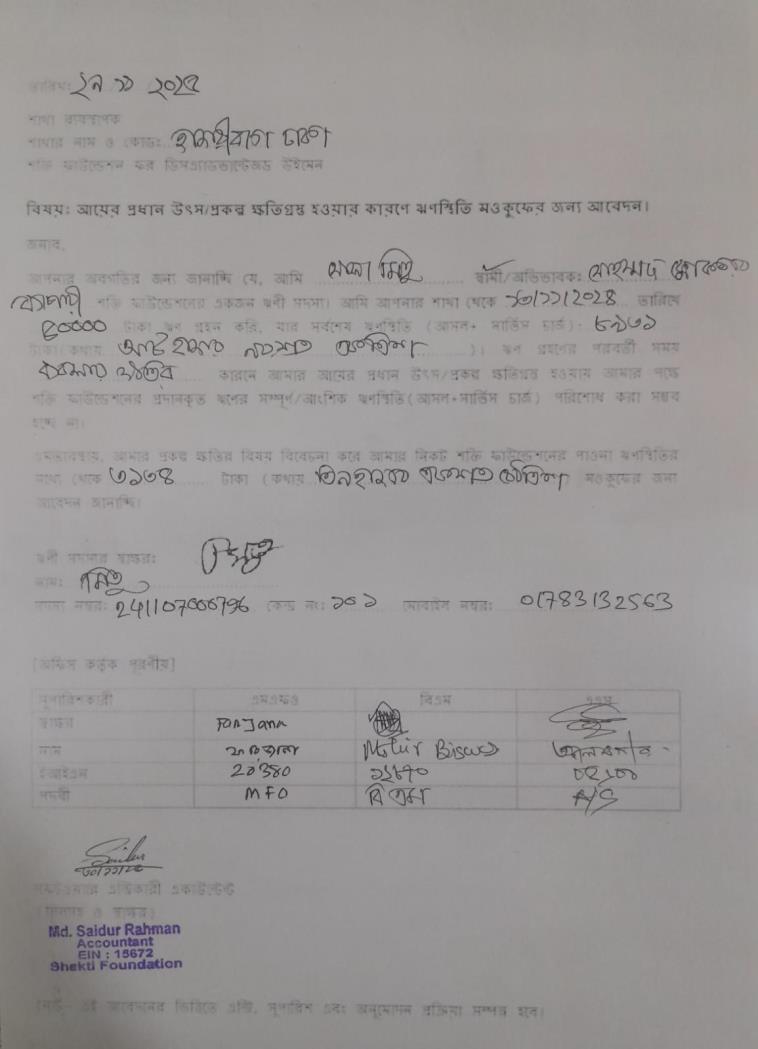 তারিখ: ২৭ ১১ ২০২৫
শাখা ব্যবস্থাপক
শাখার নাম ও কোড: হাজারীবাগ ঢাকা
শক্তি ফাউন্ডেশন ফর ডিসএ্যাডভান্টেজড উইমেন
বিষয়: আয়ের প্রধান উৎস/প্রকল্প ক্ষতিগ্রস্ত হওয়ার কারণে ঋণস্থিতি মওকুফের জন্য আবেদন।
জনাব,
আপনার অবগতির জন্য জানাচ্ছি যে, আমি মিতু স্বামী/অভিভাবক: মোহাম্মদ
বেপারী শক্তি ফাউন্ডেশনের একজন ঋণী সদস্য। আমি আপনার শাখা থেকে ১০/১১/২০২৪ তারিখে
৫০০০০ টাকা ঋণ গ্রহন করি, যার সর্বশেষ ঋণস্থিতি (আসল+ সার্ভিস চার্জ): ৮৯৩১
টাকা(কথায় আট হাজার নয়শত একত্রিশ ) । ঋণ গ্রহণের পরবর্তী সময়
ব্যবসায় কারনে আমার আয়ের প্রধান উৎস/প্রকল্প ক্ষতিগ্রস্ত হওয়ায় আমার পক্ষে
শক্তি ফাউন্ডেশনের প্রদানকৃত ঋণের সম্পূর্ণ/আংশিক ঋণস্থিতি(আসল+সার্ভিস চার্জ) পরিশোধ করা সম্ভব
হচ্ছে না।
এমতাবস্থায়, আমার প্রকল্প ক্ষতির বিষয় বিবেচনা করে আমার নিকট শক্তি ফাউন্ডেশনের পাওনা ঋণস্থিতির
মধ্যে থেকে ৩১৩৪ টাকা (কথায় তিনহাজার একশত চৌত্রিশ) মওকুফের জন্য
আবেদন জানাচ্ছি।
ঋণী সদস্যের স্বাক্ষর:
নাম: মিতু
সদস্য নম্বর: 241107000796 কেন্দ্র নং: ১০১ মোবাইল নম্বর: 01783132563
[অফিস কর্তৃক পূরণীয়]
সুপারিশকারী এমএফও বিএম এএম
স্বাক্ষর Farjana
নাম ফারজানা Motiur Biswas আলমগীর
ইআইএন 20380 ১২৮৭০
পদবী MFO বি এম A/S
Saidur
৩০/১১/২৫
সফটওয়্যারে এন্ট্রিকারী একাউন্টেন্ট
(নামসহ ও স্বাক্ষর)
Md. Saidur Rahman
Accountant
EIN : 15672
Shakti Foundation
নোট- এই আবেদনের ভিত্তিতে এন্ট্রি, সুপারিশ এবং অনুমোদন প্রক্রিয়া সম্পন্ন হবে।